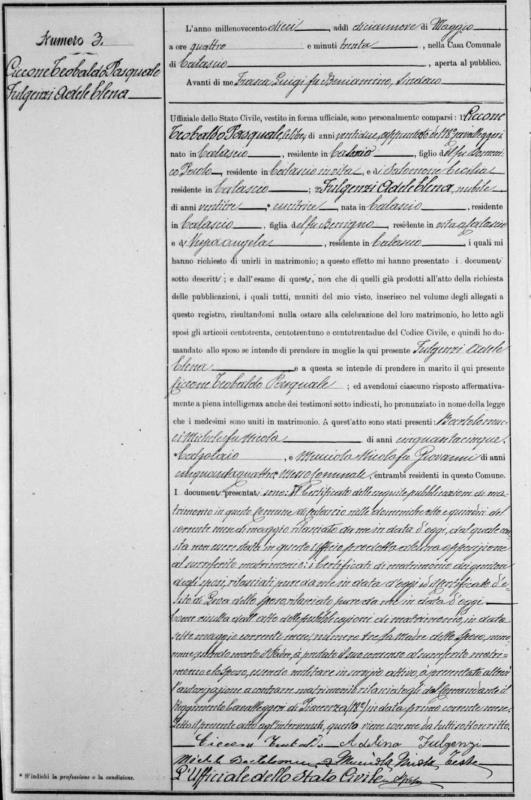 Numero 3.
Ciccone Teobaldo Pasquale
Fulgenzi Adele Elena
L'anno millenovecentodieci, addì diciannove di Maggio
a ore quattro e minuti trenta, nella Casa Comunale
di Calascio, aperta al pubblico.
Avanti di me Frasca Luigi fu Beniamino, Sindaco
Uffiziale dello Stato Civile, vestito in forma ufficiale, sono personalmente comparsi: 1° Ciccone
Teobaldo Pasquale, celibe, di anni ventidue, appuntato del cavalleggeri
nato in Calascio, residente in Calascio, figlio del fu Domeni-
co Paolo, residente in Calascio in vita e di Salomone Cecilia
residente in Calascio; 2° Fulgenzi Adele Elena, nubile
di anni ventitre, cucitrice, nata in Calascio, residente
in Calascio, figlia del fu Benigno, residente in vita a Calascio
e di Angela, residente in Calascio i quali mi
hanno richiesto di unirli in matrimonio; a questo effetto mi hanno presentato i documenti
sotto descritti; e dall'esame di questi, non che di quelli già prodotti all'atto della richiesta
delle pubblicazioni, i quali tutti, muniti del mio visto, inserisco nel volume degli allegati a
questo registro, risultandomi nulla ostare alla celebrazione del loro matrimonio, ho letto agli
sposi gli articoli centotrenta, centotrentuno e centotrentadue del Codice Civile, e quindi ho do-
mandato allo sposo se intende di prendere in moglie la qui presente Fulgenzi Adele
Elena e a questa se intende di prendere in marito il qui presente
Ciccone Teobaldo Pasquale; ed avendomi ciascuno risposto affermativa-
mente a piena intelligenza anche dei testimoni sotto indicati, ho pronunziato in nome della legge
che i medesimi sono uniti in matrimonio. A quest'atto sono stati presenti: Bartolomuc-
ci Michele fu Nicola di anni cinquantacinque
Calzolaio, e Mucciola Nicola fu Giovanni di anni
cinquantaquattro, Messo Comunale, entrambi residenti in questo Comune.
I documenti presentati sono: il Certificato delle eseguite pubblicazioni di ma-
trimonio in questo Comune di Calascio nelle domeniche otto e quindici del
corrente mese di maggio rilasciato da me in data d'oggi, dal quale con-
sta non essere stata in questo ufficio prodotta alcuna opposizione
al surriferito matrimonio; i Certificati di matrimonio dei genitori
degli sposi, rilasciati pure da me in data d'oggi; il Certificato d'e-
sito di Leva dello sposo, rilasciato pure da me in data d'oggi
come risulta dall'atto delle pubblicazioni di matrimonio, in data
sette maggio corrente mese, numero tre, la madre dello sposo,
essendo morto il padre, à prestato il suo consenso al surriferito matri-
monio e lo sposo, essendo militare in servizio attivo, à presentato altresì
l'autorizzazione a contrarre matrimonio rilasciatagli dal Comandante il
Reggimento Cavalleggeri di Piacenza (18°) in data primo corrente mese
Letto il presente atto agl'intervenuti, questo viene con me da tutti sottoscritto.
Ciccone Teobaldo Adelina Fulgenzi
Michele Bartolomucci Mucciola Nicola Teste
L'Uffiziale dello Stato Civile
* S'indichi la professione o la condizione.